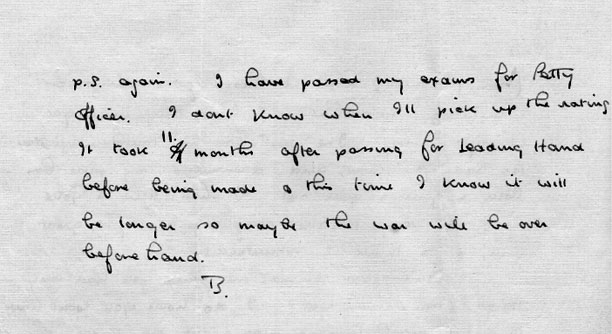 p.s. again. I have passed my exams for Petty
Officer. I dont know when I'll pick up the rating
It took 11. months after passing for Leading Hand
before being made & this time I know it will
be longer so maybe the war will be over
before hand.
B.